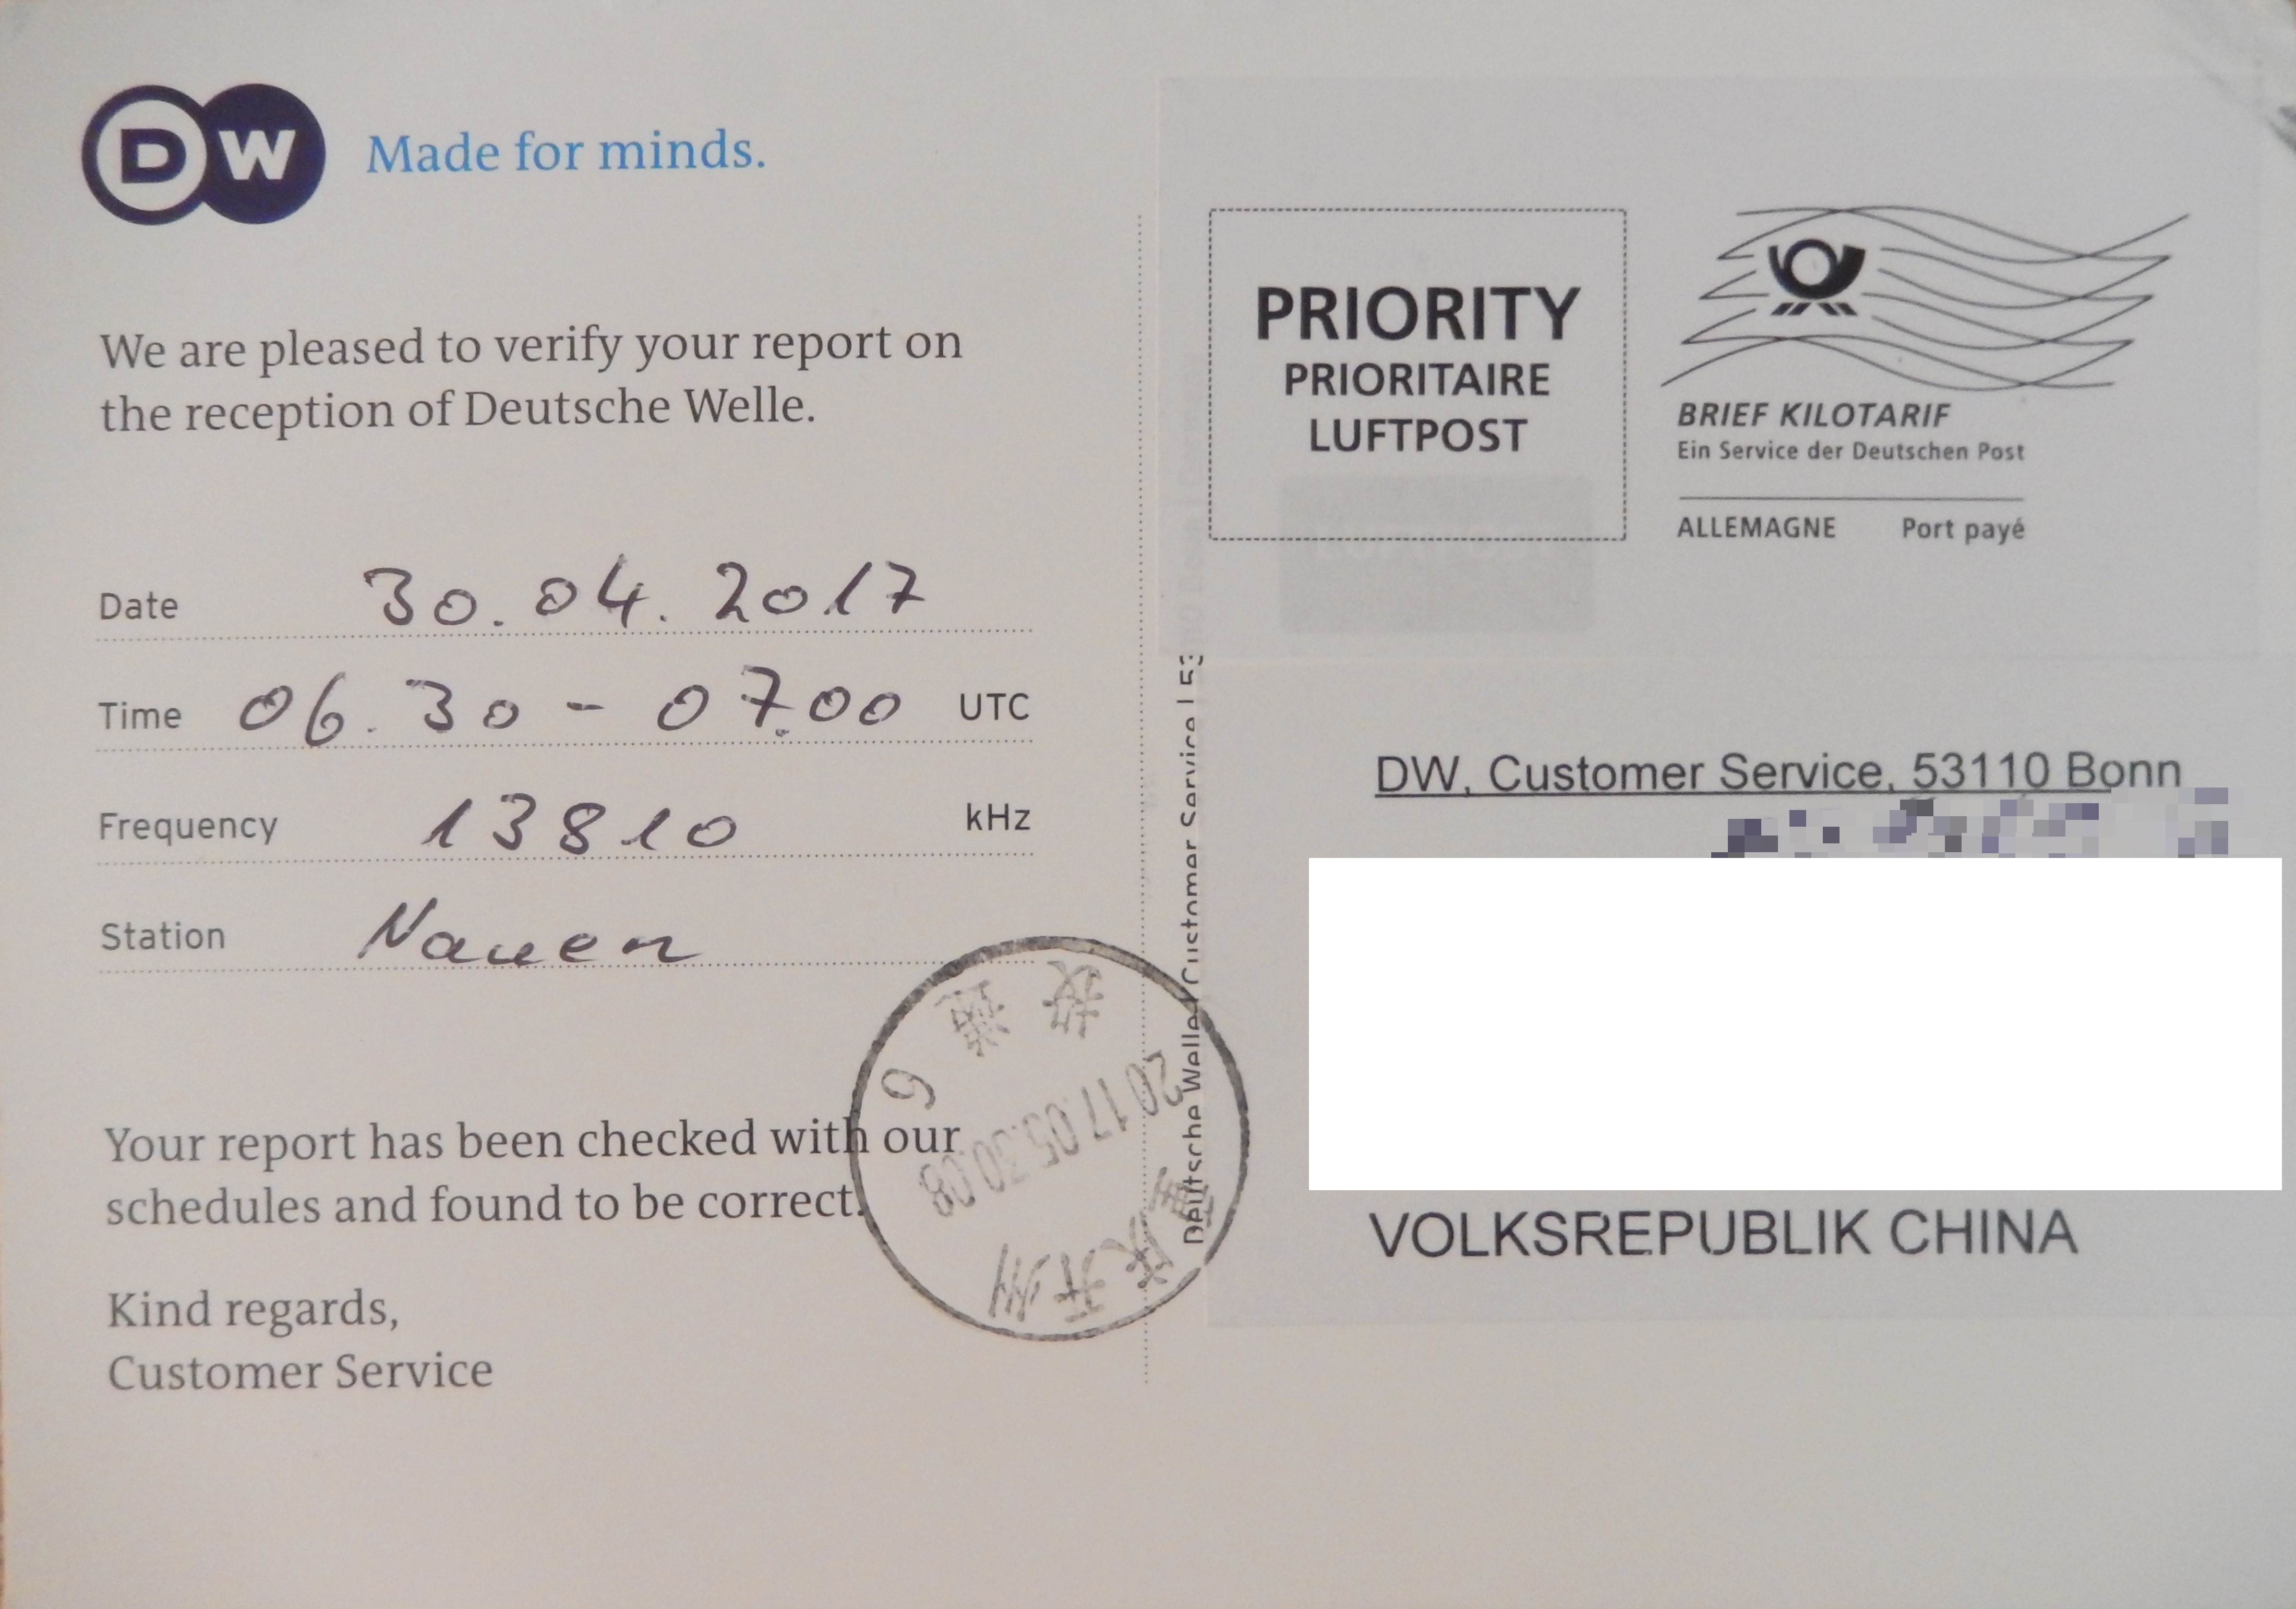 DW Made for minds.
We are pleased to verify your report on
the reception of Deutsche Welle.
Date 30.04.2017
Time 06.30 - 07.00 UTC
Frequency 13810 kHz
Station Nauen
Your report has been checked with our
schedules and found to be correct.
Kind regards,
Customer Service
Deutsche Welle / Customer Service | 53
PRIORITY
PRIORITAIRE
LUFTPOST
BRIEF KILOTARIF
Ein Service der Deutschen Post
ALLEMAGNE Port payé
DW, Customer Service, 53110 Bonn
VOLKSREPUBLIK CHINA
重庆开州
2017.05.30.08
6